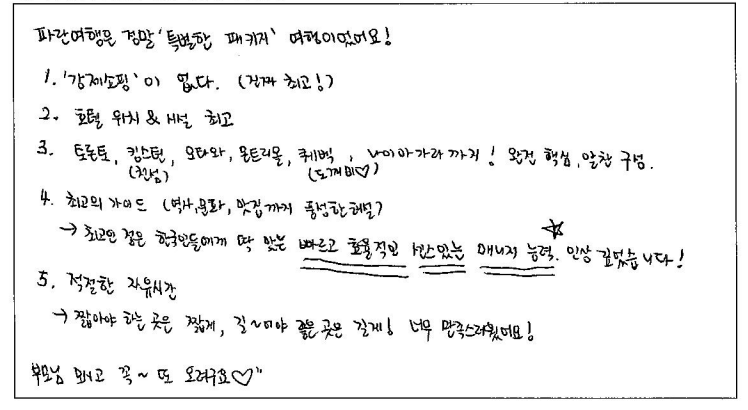 파란여행은 정말 '특별한 패키지' 여행이었어요!
1. '강제쇼핑'이 없다. (진짜 최고!)
2. 호텔 위치 & 시설 최고
3. 토론토, 킹스턴, 오타와, 몬트리올, 퀘벡, 나이아가라까지! 완전 핵심, 알찬 구성.
(천섬) (도깨비♡)
4. 최고의 가이드 (역사, 문화, 맛집까지 풍성한 해설)
→ 최고인 점은 한국인들에게 딱 맞는 빠르고 효율적인 센스있는 매니징 능력. 인상 깊었습니다!
5. 적절한 자유시간
→ 짧아야 하는 곳은 짧게, 길~어야 좋은 곳은 길게! 너무 만족스러웠어요!
부모님 모시고 꼭~ 또 오려구요♡"